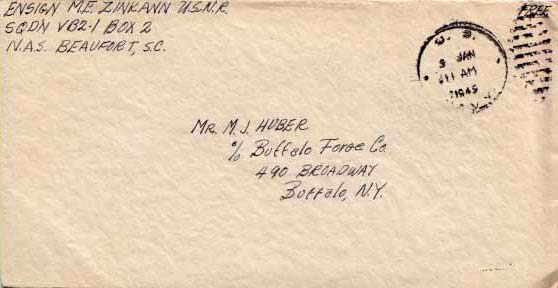 ENSIGN M.E. ZINKANN U.S.N.R.
SQDN VB2-1 BOX 2
N.A.S. BEAUFORT, S.C.
FREE
U. S.
9 JAN
11 AM
1945
MR. M. J. HUBER
% Buffalo Forge Co.
490 BROADWAY
Buffalo, N.Y.